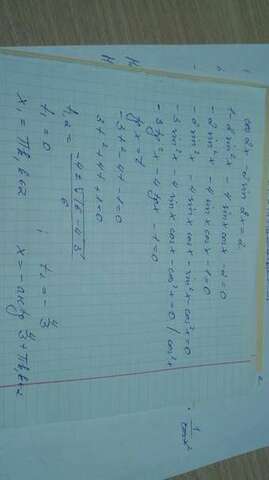 cos 2x - 2 sin 2x = 2
1 - 2 sin²x - 4 sinx cosx - 2 = 0
- 2 sin²x - 4 sinx cosx - 1 = 0
- 2 sin²x - 4 sinx cosx - sin²x - cos²x = 0
- 3 sin²x - 4 sinx cosx - cos²x = 0 / cos²x
- 3 tg²x - 4 tgx - 1 = 0
tg x = t
- 3t² - 4t - 1 = 0
3t² + 4t + 1 = 0
t₁,₂ = (-4 ± √16 - 4·3) / 6
t₁ = 0 ; t₂ = - 4/3
x₁ = πk, k∈z x = - аrctg 4/3 + πk, k∈z
· 1/cosx²